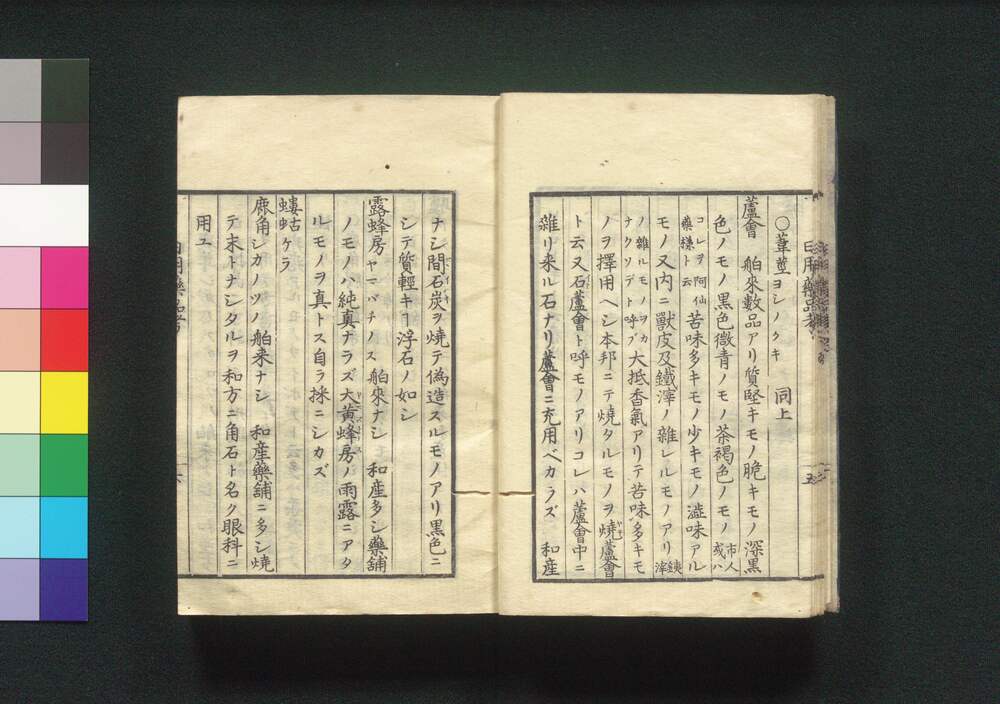 〇葦莖ヨシノクキ 同上
蘆會 舶來數品アリ質堅キモノ脆キモノ深黒
色ノモノ黒色微青ノモノ茶褐色ノモノ市人或ハ
コレヲ阿仙藥様ト云苦味多キモノ少キモノ澁味アル
モノ又内ニ獸皮及鐵滓ノ雜レルモノアリ鐵滓
ノ雜ルモノヲカナクソデト呼ブ大抵香氣アリテ苦味多キモ
ノヲ擇用ヘシ本邦ニテ燒タルモノヲ燒蘆會
ト云又石蘆會ト呼モノアリコレハ蘆會中ニ
雜リ来ル石ナリ蘆會ニ充用ベカラズ 和産
日用藥品考
五
ナシ間石炭ヲ燒テ偽造スルモノアリ黒色ニ
シテ質輕キヿ浮石ノ如シ
露蜂房ヤマバチノス 舶來ナシ 和産多シ藥舖
ノモノハ純真ナラズ大黄蜂房ノ雨露ニアタ
ルモノヲ真トス自ラ採ニシカズ
螻蛄ケラ
鹿角シカノツノ 舶来ナシ 和産藥舖ニ多シ燒
テ末トナシタルヲ和方ニ角石ト名ク眼科ニ
用ユ
日用藥品考
六